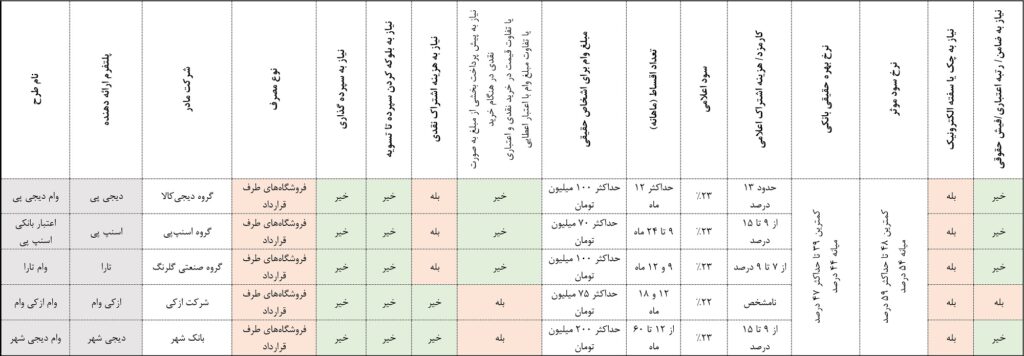 نام طرح
پلتفرم ارائه دهنده
شرکت مادر
نوع مصرف
نیاز به سپرده گذاری
نیاز به بلوکه کردن سپرده تا تسویه
نیاز به هزینه اشتراک نقدی
نیاز به پیش پرداخت بخشی از مبلغ به صورت
نقدی در هنگام خرید
یا تفاوت قیمت در خرید نقدی و اعتباری
یا تفاوت مبلغ وام با اعتبار اعطایی
مبلغ وام برای اشخاص حقیقی
تعداد اقساط (ماهانه)
سود اعلامی
کارمزد/ هزینه اشتراک اعلامی
نرخ بهره حقیقی بانکی
نرخ سود موثر
نیاز به چک یا سفته الکترونیک
نیاز به ضامن/ رتبه اعتباری/فیش حقوقی
وام دیجی پی
دیجی پی
گروه دیجی‌کالا
فروشگاه‌های طرف
قرارداد
خیر
خیر
بله
خیر
حداکثر ۱۰۰ میلیون
تومان
حداکثر ۱۲
ماه
۲۳٪
حدود ۱۳
درصد
بله
خیر
اعتبار بانکی
اسنپ پی
اسنپ پی
گروه اسنپ‌پی
فروشگاه‌های طرف
قرارداد
خیر
خیر
بله
خیر
حداکثر ۷۰ میلیون
تومان
۹ تا ۲۴ ماه
۲۳٪
از ۹ تا ۱۵
درصد
بله
خیر
وام تارا
تارا
گروه صنعتی گلرنگ
فروشگاه‌های طرف
قرارداد
خیر
خیر
بله
خیر
حداکثر ۱۰۰ میلیون
تومان
۹ و ۱۲ ماه
۲۳٪
از ۷ تا ۹ درصد
بله
خیر
وام ازکی وام
ازکی وام
شرکت ازکی
فروشگاه‌های طرف
قرارداد
خیر
خیر
خیر
بله
حداکثر ۷۵ میلیون
تومان
۱۲ و ۱۸
ماه
۲۲٪
نامشخص
بله
بله
وام دیجی شهر
دیجی شهر
بانک شهر
فروشگاه‌های طرف
قرارداد
خیر
خیر
خیر
بله
حداکثر ۲۰۰ میلیون
تومان
از ۱۲ تا ۶۰
ماه
۲۳٪
از ۹ تا ۱۵
درصد
بله
خیر
کمترین ۳۹ تا حداکثر ۴۷ درصد
میانه ۴۴ درصد
کمترین ۴۸ تا حداکثر ۵۹ درصد
میانه ۵۴ درصد